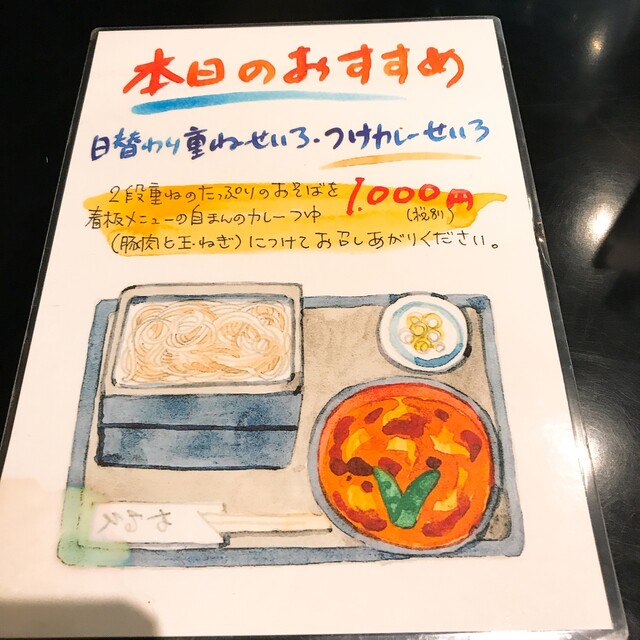 本日のおすすめ
日替わり重ねせいろ・つけカレーせいろ
2段重ねのたっぷりのおそばを 1.000円
看板メニューの自まんのカレーつゆ (税別)
(豚肉と玉ねぎ)につけてお召しあがりください。